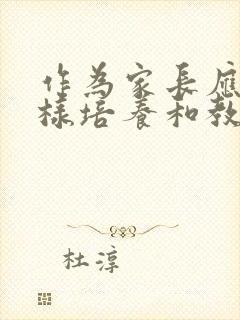 作为家长应
样培养和教
杜淳